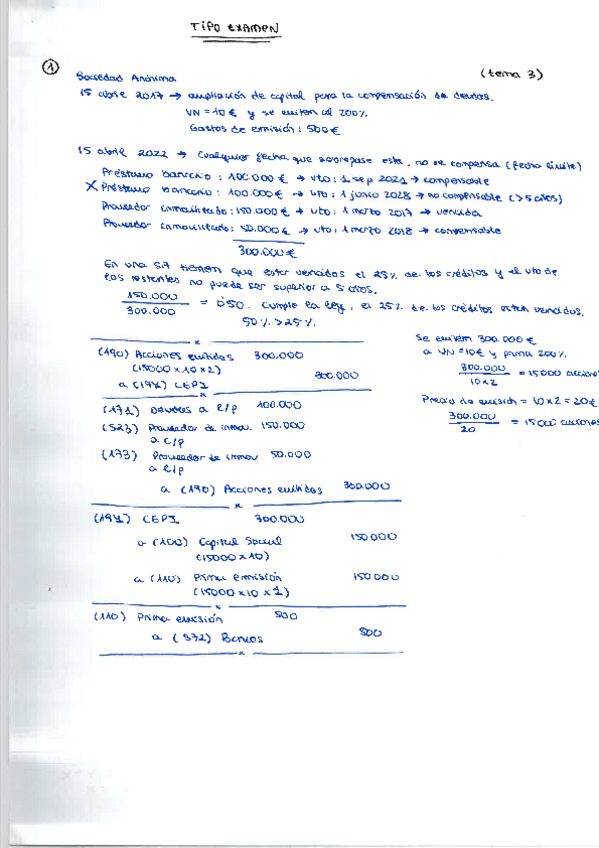 TIPO EXAMEN
① (tema 3)
Sociedad Anónima
15 abril 2017 → ampliación de capital para la compensación de deudas.
VN = 10 € y se emiten al 200%.
Gastos de emisión: 500 €
15 abril 2022 → Cualquier fecha que sobrepase esta, no se compensa (fecha límite)
Préstamo bancario: 100.000 € → vto: 1 sep 2021 → compensable
X Préstamo bancario: 100.000 € → vto: 1 junio 2028 → no compensable (>5 años)
Proveedor inmovilizado: 150.000 € → vto: 1 marzo 2017 → vencida
Proveedor inmovilizado: 50.000 € → vto: 1 marzo 2018 → compensable
300.000 €
En una SA tienen que estar vencidos el 25% de los créditos y el vto de
los restantes no puede ser superior a 5 años.
150.000 / 300.000 = 0'50. Cumple la ley, el 25% de los créditos están vencidos.
50% > 25%.
x
(190) Acciones emitidas 300.000
(15000 x 10 x 2)
a (194) CEPI 300.000
x
(171) Deudas a l/p 100.000
(523) Proveedor de inmov. 150.000
a c/p
(173) Proveedor de inmov 50.000
a l/p
a (190) Acciones emitidas 300.000
x
(194) CEPI 300.000
a (100) Capital Social 150.000
(15000 x 10)
a (110) Prima emisión 150.000
(15000 x 10 x 1)
x
(110) Prima emisión 500
a (572) Bancos 500
x
Se emiten 300.000 €
a VN = 10 € y prima 200%.
300.000 / 10 x 2 = 15000 accion
Precio de emisión = 10 x 2 = 20 €
300.000 / 20 = 15000 acciones